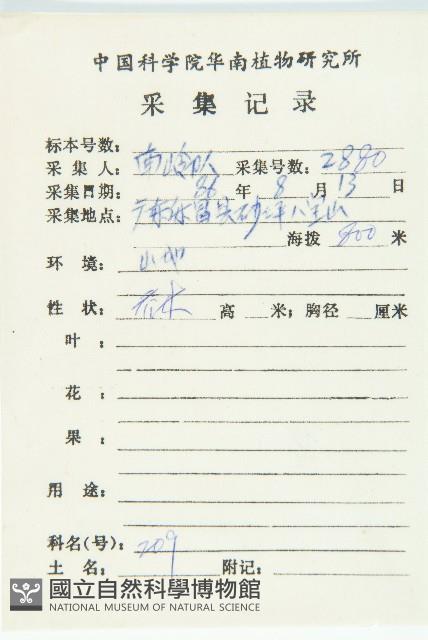 中国科学院华南植物研究所
采集记录
标本号数：
采集人：南岭队 采集号数：2880
采集日期：86年8月13日
采集地点：广东 八宝山
海拨 800 米
环境：山地
性状： 高 米；胸径 厘米
叶：
花：
果：
用途：
科名(号)：209
土名： 附记：
國立自然科學博物館
NATIONAL MUSEUM OF NATURAL SCIENCE